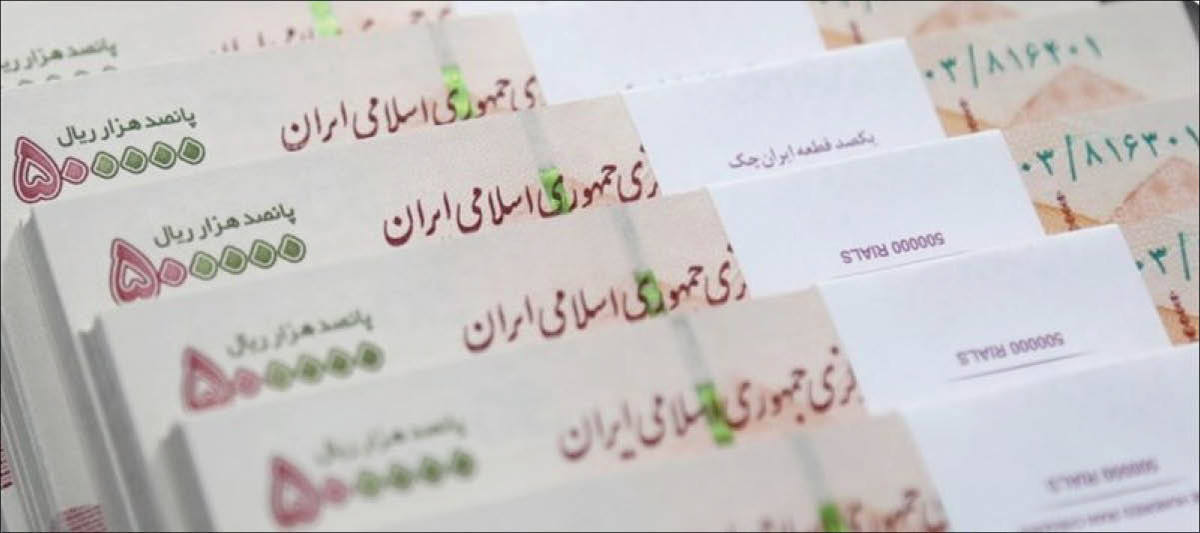 پانصد هزار ریال
پانصد هزار ریال
۵۰۰۰۰۰
جمهوری اسلامی ایران
۰۳/۸۱۶۴۰۱
پانصد هزار ریال
۵۰۰۰۰۰
جمهوری اسلامی ایران
یکصد قطعه ایران چک
۰۳/۸۱۶۳۰۱
پانصد هزار ریال
۵۰۰۰۰۰
جمهوری اسلامی ایران
500000 RIALS
۰۳/
پانصد هزار ریال
۵۰۰۰۰۰
جمهوری اسلامی ایران
500000 RIALS
500000 RIALS